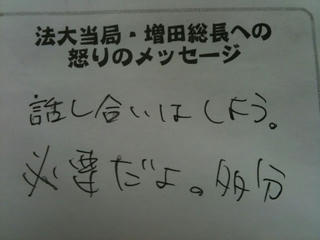 法大当局・増田総長への
怒りのメッセージ
話し合いはしよう。
必要だよ。多分